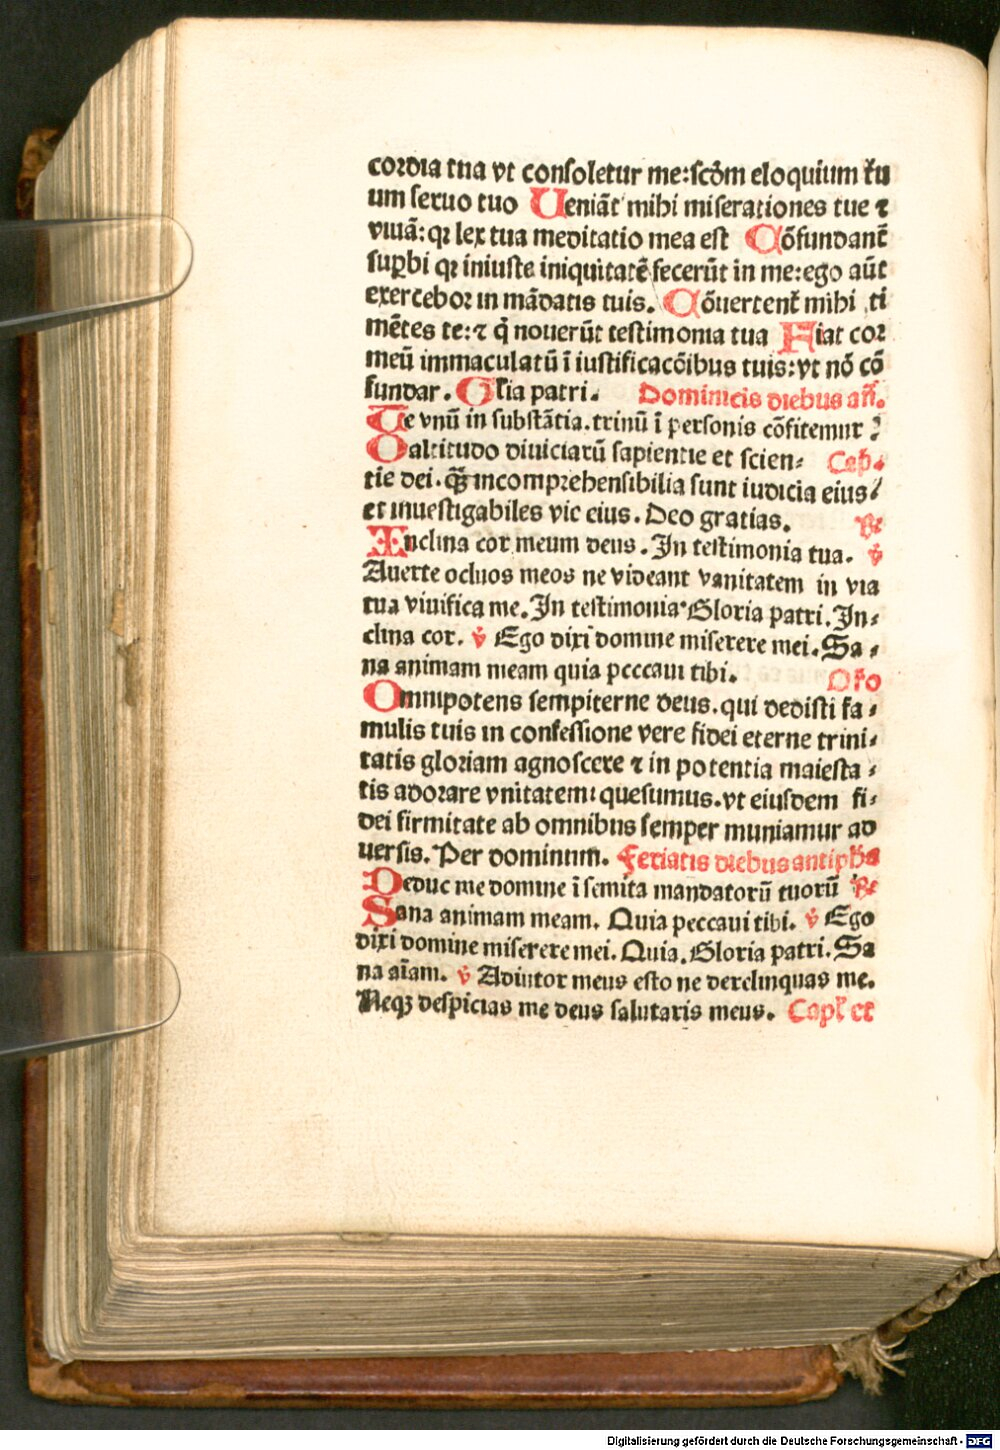 cordia tua vt consoletur me: scd̄m eloquium tu
um seruo tuo Ueniāt mihi miserationes tue ⁊
viuā: qꝛ lex tua meditatio mea est Cōfundant̄
suꝑbi qꝛ iniuste iniquitatē fecerūt in me: ego aūt
exercebor in mādatis tuis. Cōuertent̄ mihi ti
mētes te: ⁊ q̄ nouerūt testimonia tua Fiat cor
meū immaculatū ī iustificacōibus tuis: vt nō cō
fundar. Gl̄ia patri. Dominicis diebus an̄.
Te vnū in substātia. trinū ī personis cōfitemur
O altitudo diuiciarū sapientie et scien⸗ Cap̄.
tie dei. qꝫ̄ incomprehensibilia sunt iudicia eius /
et inuestigabiles vie eius. Deo gratias. ℞
Inclina cor meum deus. In testimonia tua. ℣
Auerte oculos meos ne videant vanitatem in via
tua viuifica me. In testimonia Gloria patri. In⸗
clina cor. ℣ Ego dixi domine miserere mei. Sa⸗
na animam meam quia peccaui tibi. Or̄o
Omnipotens sempiterne deus. qui dedisti fa⸗
mulis tuis in confessione vere fidei eterne trini⸗
tatis gloriam agnoscere ⁊ in potentia maiesta⸗
tis adorare vnitatem: quesumus. vt eiusdem fi⸗
dei firmitate ab omnibus semper muniamur ad
uersis. Per dominum. Feriatis diebus antiph̄a
Deduc me domine ī semita mandatorū tuorū ℞
Sana animam meam. Quia peccaui tibi. ℣ Ego
dixi domine miserere mei. Quia. Gloria patri. Sa
na aīam. ℣ Adiutor meus esto ne derelinquas me.
Neqꝫ despicias me deus salutaris meus. Capl̄ et
Digitalisierung gefördert durch die Deutsche Forschungsgemeinschaft - DFG